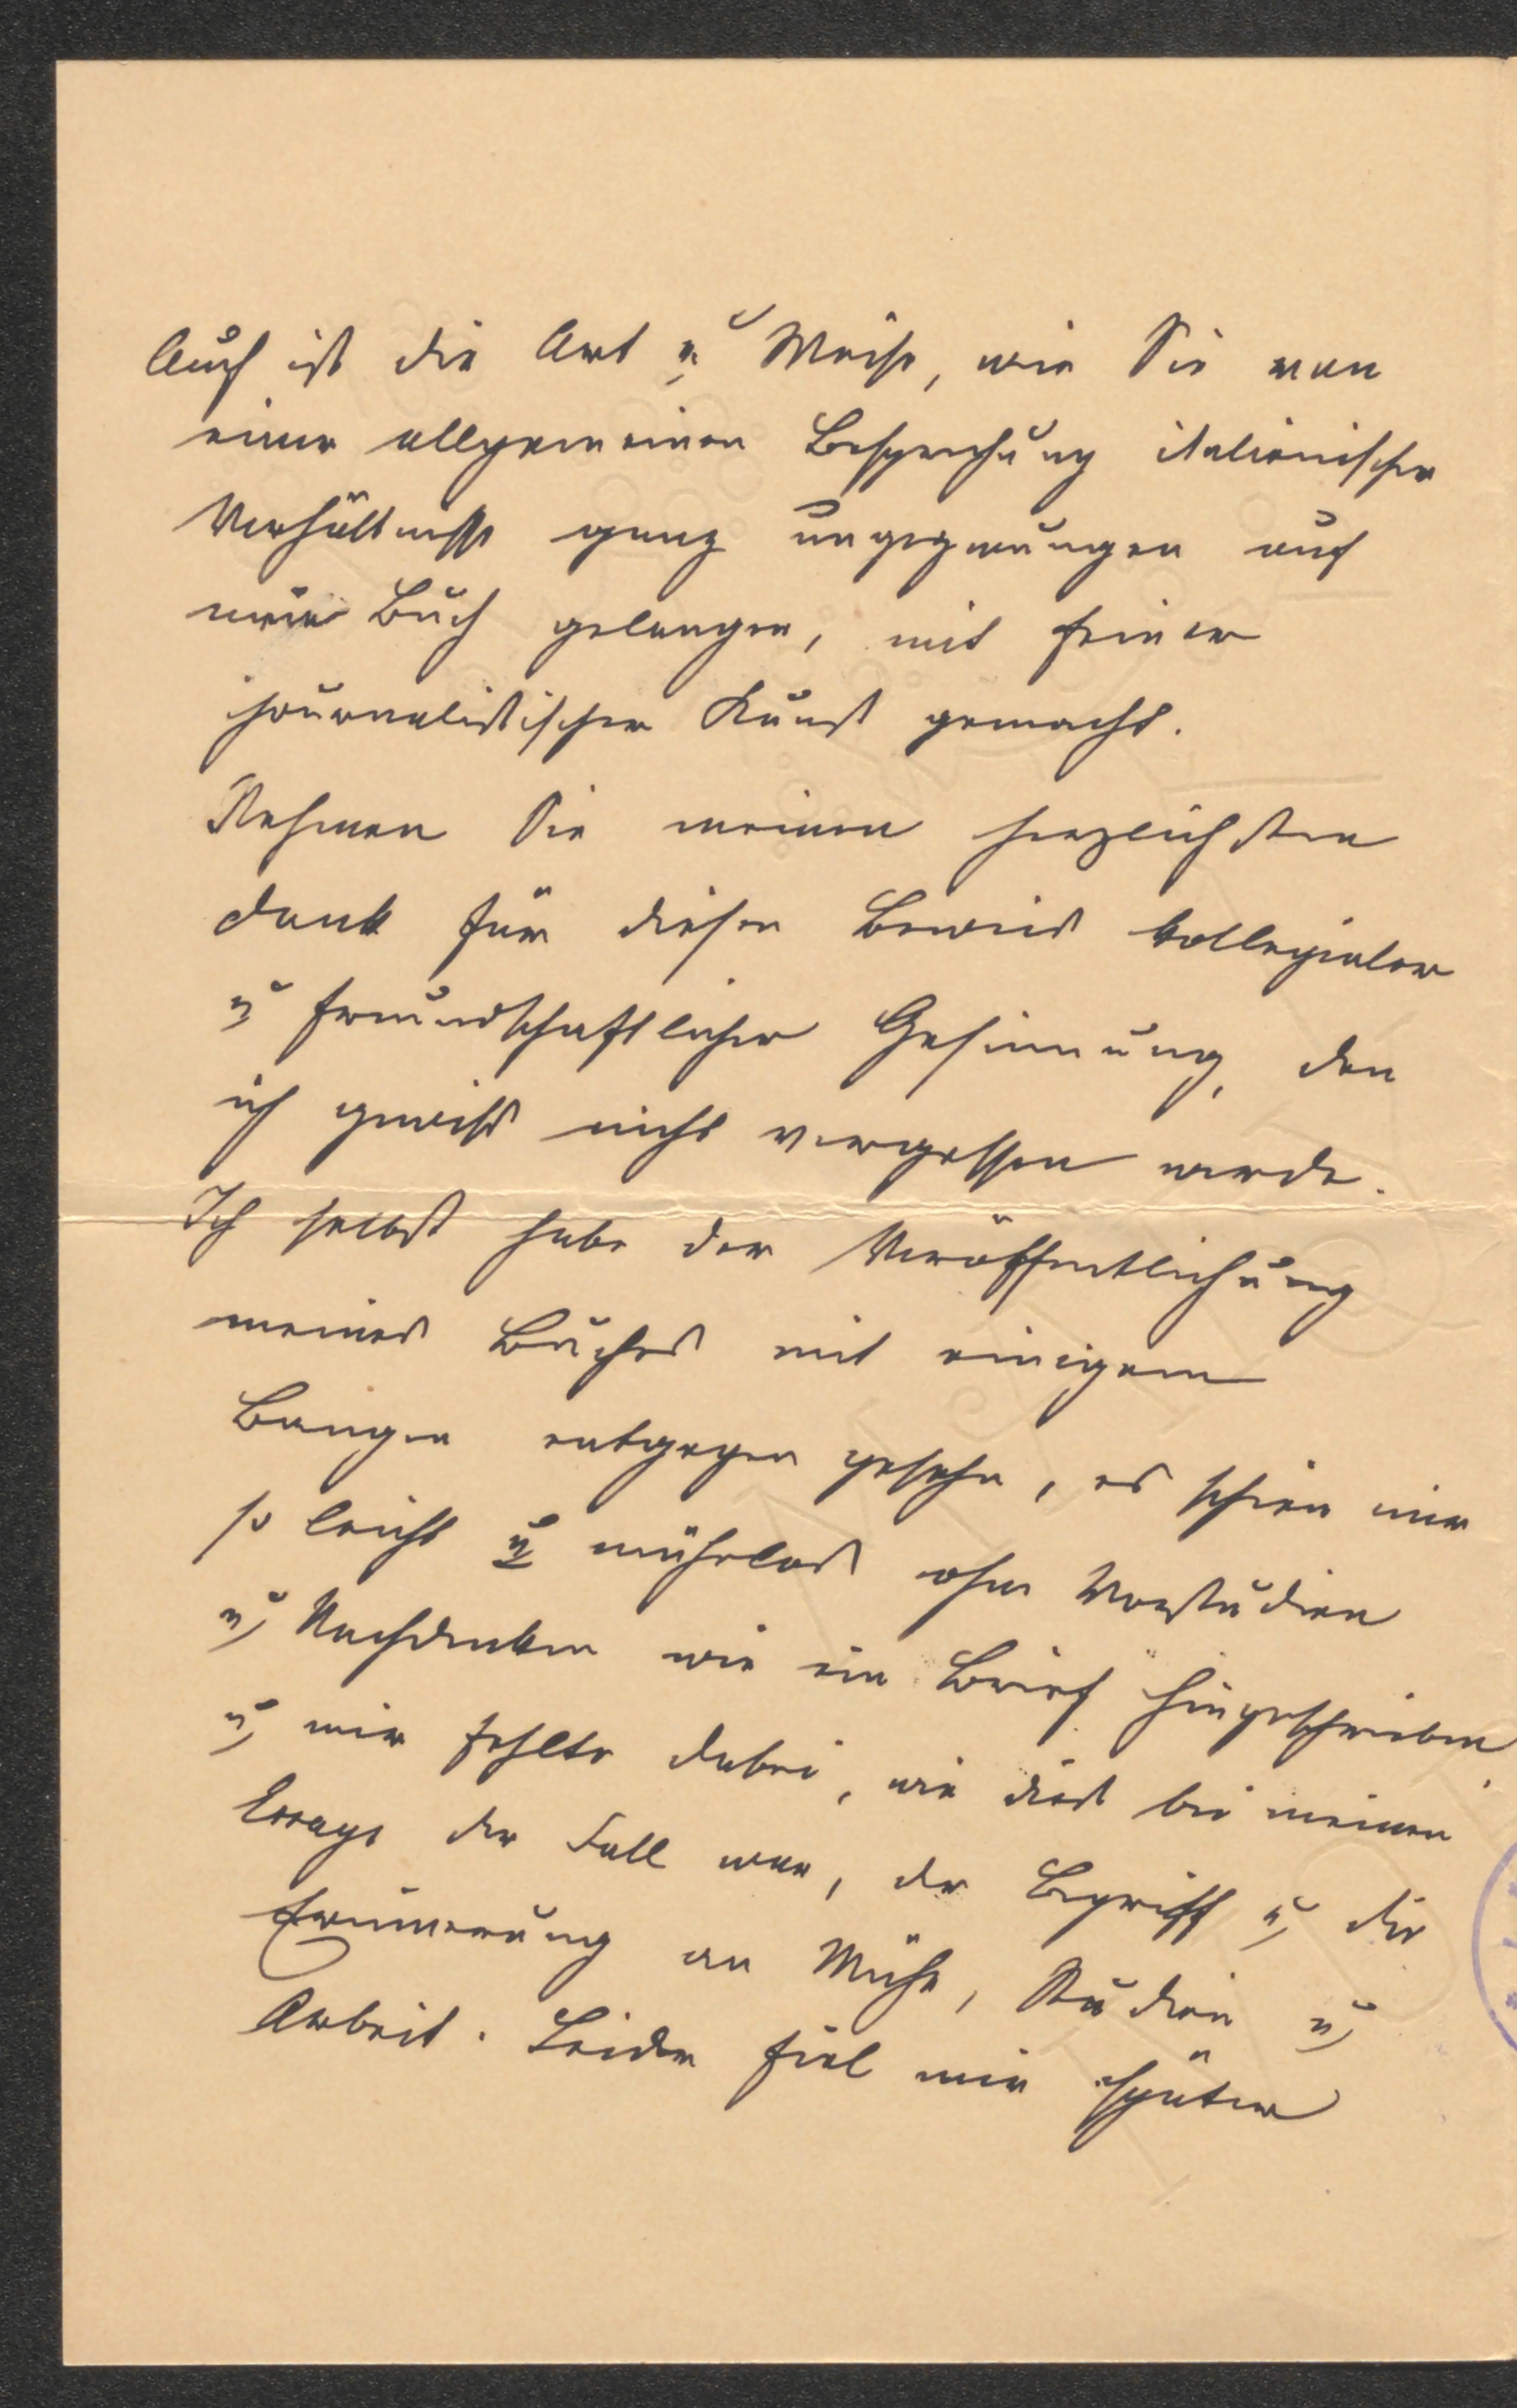 Auch ist die Art u. Weise, wie Sie von
einer allgemeinen Besprechung italienischer
Verhältnisse ganz ungezwungen auf
mein Buch gelangen, mit feiner
journalistischer Kunst gemacht.
Nehmen Sie meinen herzlichsten
Dank für diesen Beweis kollegialer
u. freundschaftlicher Gesinnung, den
ich gewiß nicht vergessen werde.
Ich selbst habe der Veröffentlichung
meines Buches mit einigem
Bangen entgegen gesehn, es schien mir
so leicht u. mühelos ohne Vorstudien
u. Nachdenken wie ein Brief hingeschrieben
u. mir fehlte dabei, wie dies bei meinen
Essays der Fall war, der Begriff u. die
Erinnerung an Mühe, Studien u.
Arbeit. Leider fiel mir später